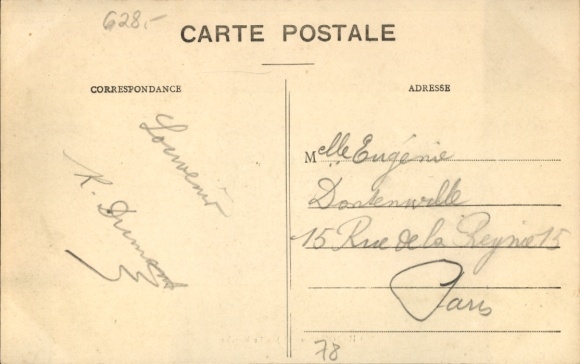 628.-
CARTE POSTALE
CORRESPONDANCE
Souvenir
R. Dumont
ADRESSE
Melle Eugénie
Dontenville
15 Rue de la Reynie 15
Paris
78